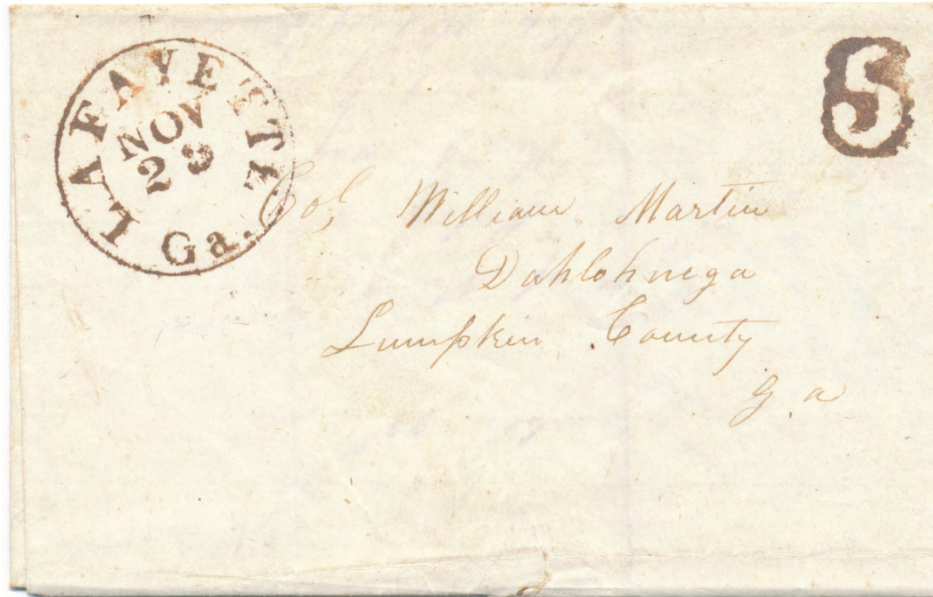 LAFAYETTE
NOV
23
Ga.
5
Col, William Martin
Dahlohnega
Lumpkin County
g.a